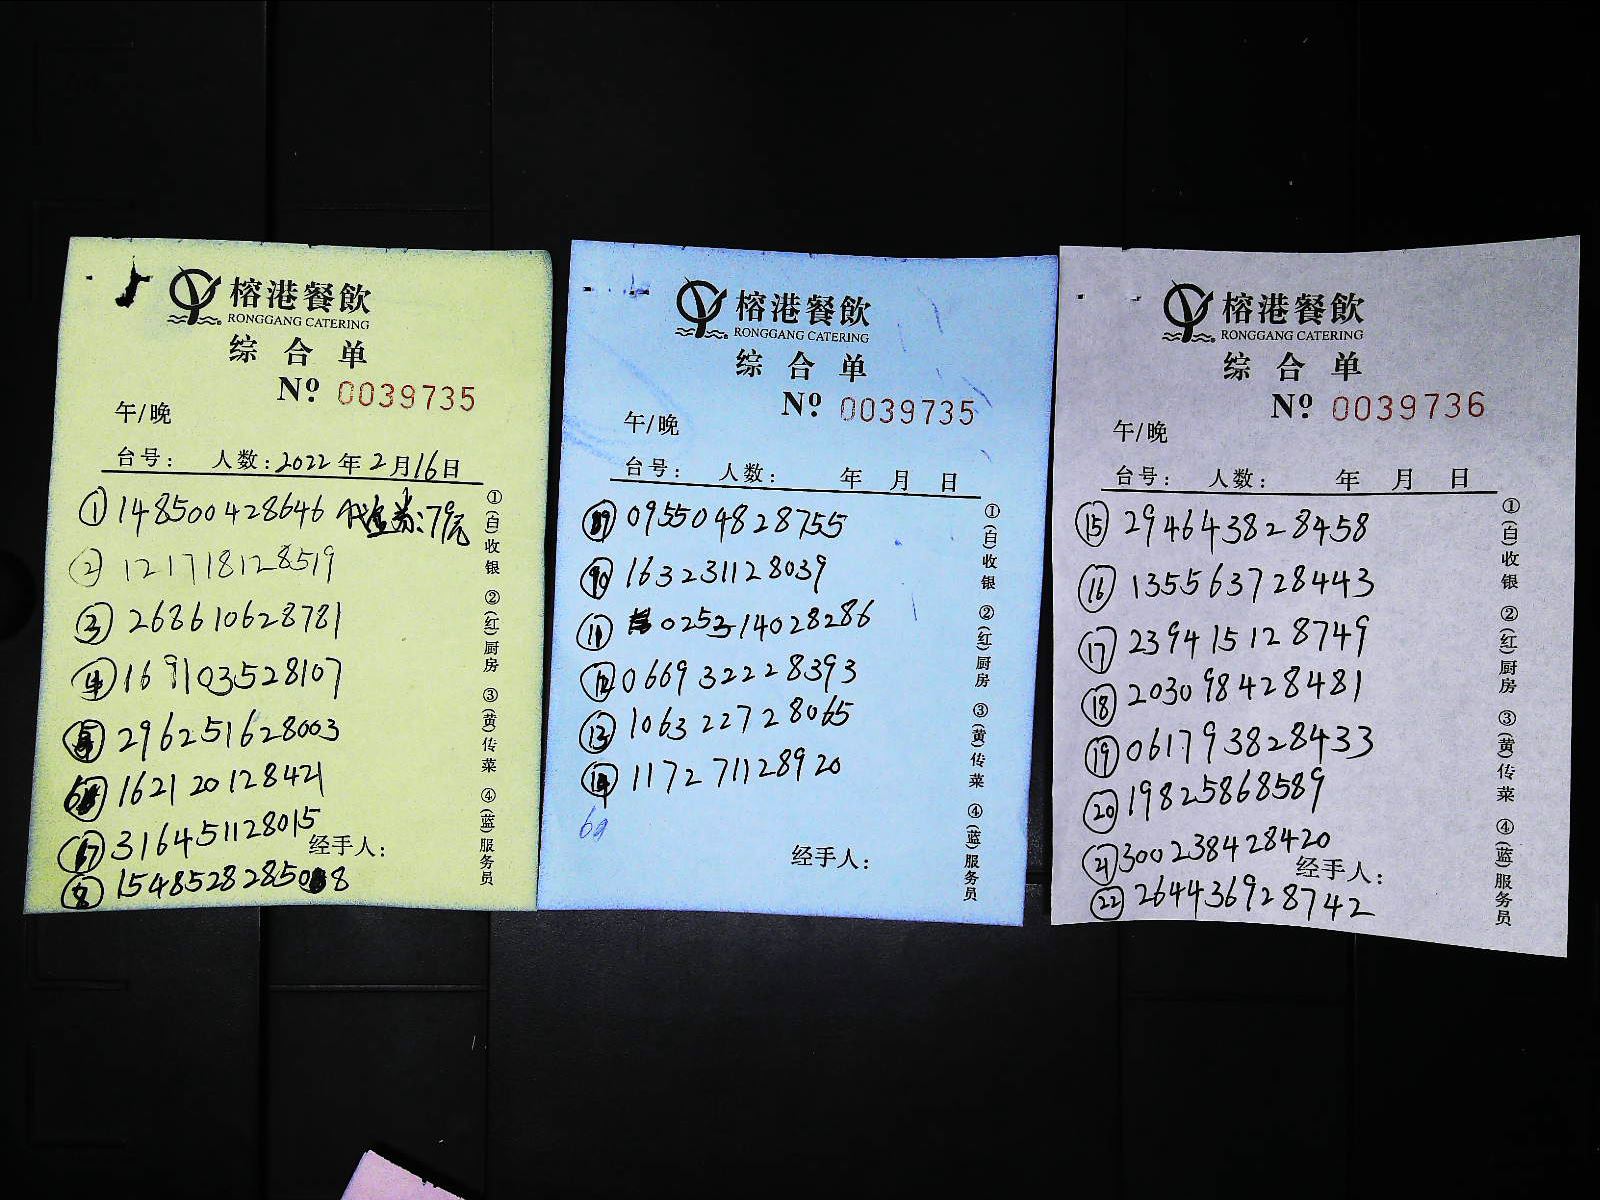 榕港餐飲
RONGGANG CATERING
综合单
Nº 0039735
午/晚
台号： 人数：2022年2月16日
① 148500428646 代金券：79元
② 121718128519
③ 268610628781
④ 169103528107
⑤ 296251628003
⑥ 162120128421
⑦ 316451128015
经手人：
⑧ 154852828508
①(白)收银 ②(红)厨房 ③(黄)传菜 ④(蓝)服务员
榕港餐飲
RONGGANG CATERING
综合单
Nº 0039735
午/晚
台号： 人数： 年 月 日
⑨ 095504828755
⑩ 163231128039
⑪ 025314028286
⑫ 066932228393
⑬ 106322728065
⑭ 117271128920
经手人：
①(白)收银 ②(红)厨房 ③(黄)传菜 ④(蓝)服务员
榕港餐飲
RONGGANG CATERING
综合单
Nº 0039736
午/晚
台号： 人数： 年 月 日
⑮ 294643828458
⑯ 135563728443
⑰ 239415128749
⑱ 203098428481
⑲ 061793828433
⑳ 19825868589
㉑ 300238428420
经手人：
㉒ 264436928742
①(白)收银 ②(红)厨房 ③(黄)传菜 ④(蓝)服务员